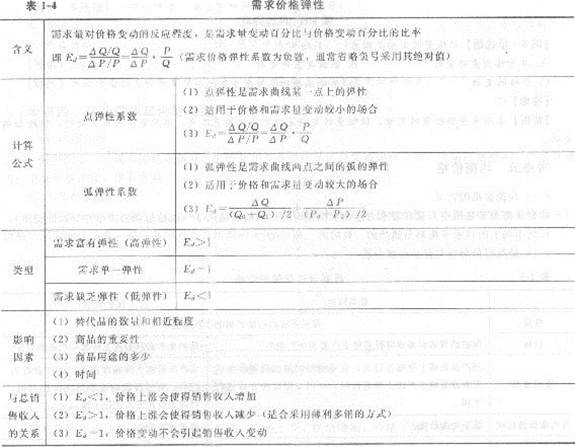 表 1-4 需求价格弹性
含义
需求量对价格变动的反应程度，是需求量变动百分比与价格变动百分比的比率
即 E_d = (ΔQ/Q)/(ΔP/P) = ΔQ/ΔP · P/Q（需求价格弹性系数为负数，通常省略负号采用其绝对值）
计算公式
点弹性系数
(1) 点弹性是需求曲线某一点上的弹性
(2) 适用于价格和需求量变动较小的场合
(3) E_d = (ΔQ/Q)/(ΔP/P) = ΔQ/ΔP · P/Q
弧弹性系数
(1) 弧弹性是需求曲线两点之间的弧的弹性
(2) 适用于价格和需求量变动较大的场合
(3) E_d = ΔQ/((Q₀+Q₁)/2) ÷ ΔP/((P₀+P₁)/2)
类型
需求富有弹性（高弹性） E_d>1
需求单一弹性 E_d=1
需求缺乏弹性（低弹性） E_d<1
影响因素
(1) 替代品的数量和相近程度
(2) 商品的重要性
(3) 商品用途的多少
(4) 时间
与总销售收入的关系
(1) E_d<1，价格上涨会使得销售收入增加
(2) E_d>1，价格上涨会使得销售收入减少（适合采用薄利多销的方式）
(3) E_d=1，价格变动不会引起销售收入变动